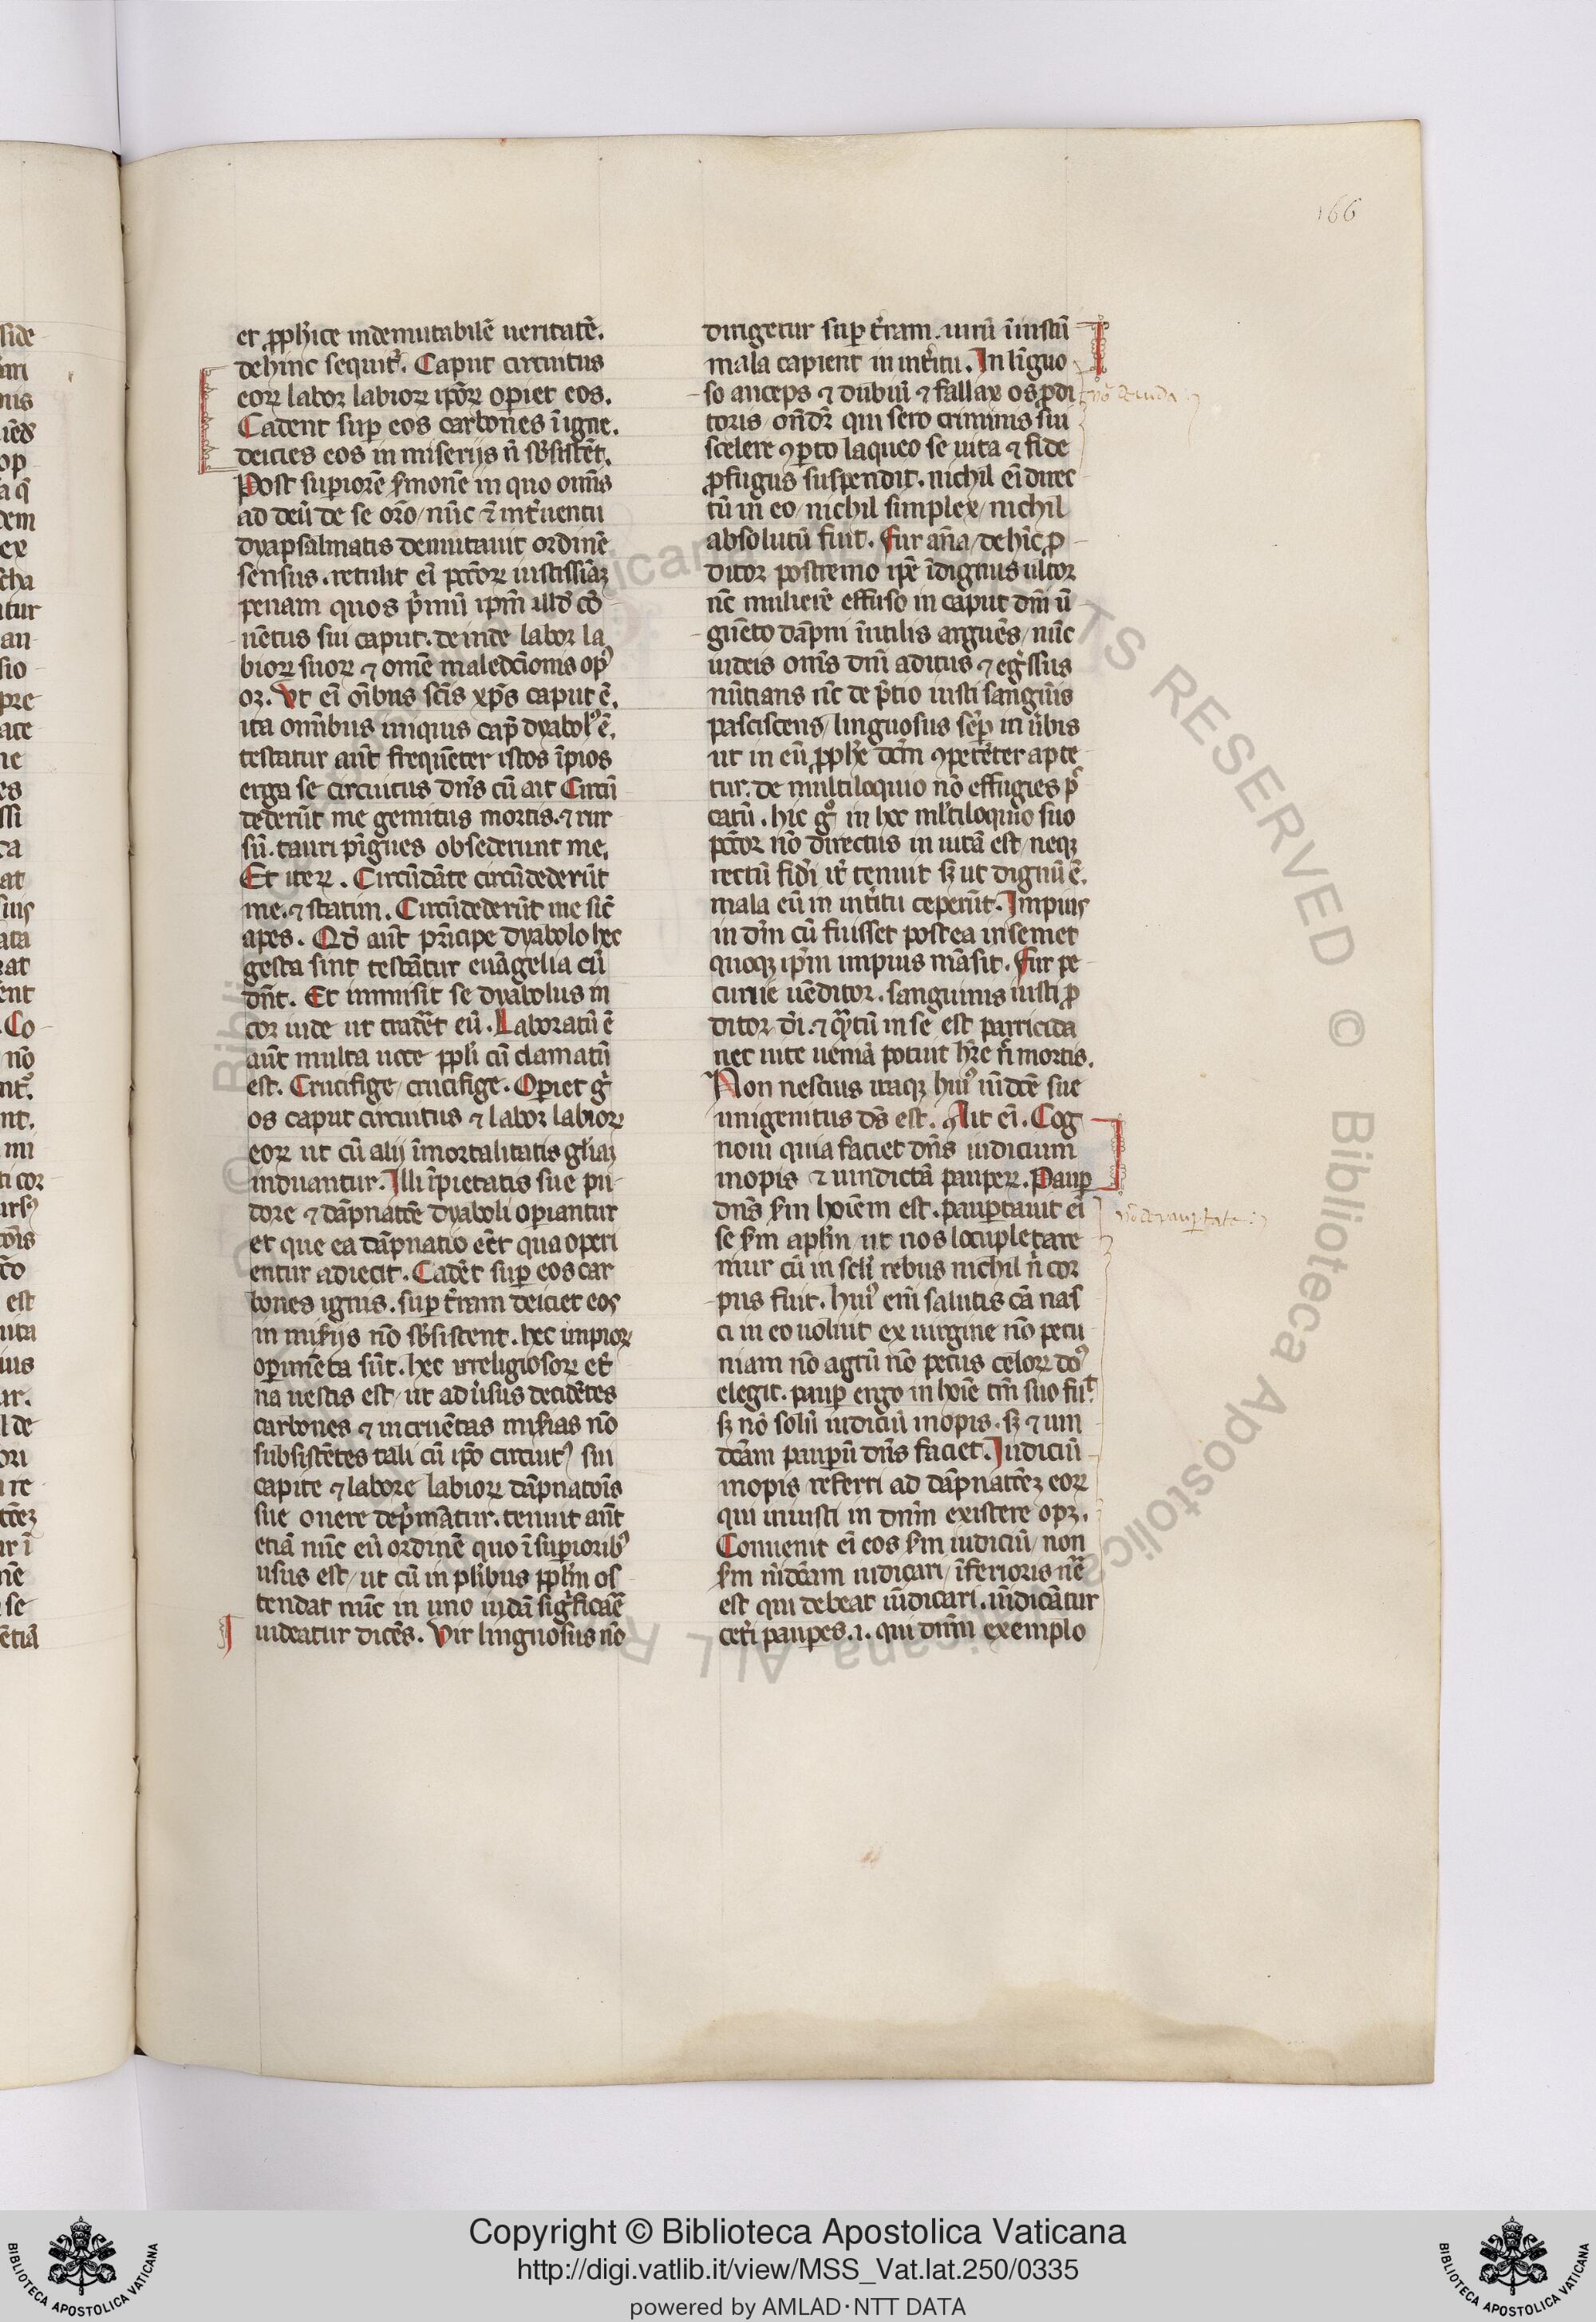 166
et ꝓph̾ice indemutabilē ueritatē.
dehinc sequit᷑. Caput circuitus
eoꝝ labor labioꝝ ip̄oꝝ oꝑiet eos.
Cadent suꝑ eos carbones ī igne.
deicies eos in miserijs n̄ sb̾sistēt.
Post suꝑiorē ẜmonē in quo om̄is
ad deū de se oro/ nūc ī int̾uentu
dyapsalmatis demutauit ordinē
sensus. retulit ei̅ pcc̄oꝝ iustissīaꝫ
penam quos p̾mū ip̄m illd̾ cō
uētus sui caput. deinde labor la
bioꝝ suoꝝ ⁊ om̄e maledc̄ionis oꝑ
oꝫ. Vt ei̅ oīb̄us sc̄is xp̄s caput ē.
ita omībus iniquis cap̄ dyabolꝰ ē.
testatur aūt frequēter istos īpios
erga se circuitus dn̄s cū ait Circū
dederūt me gemitus mortis. ⁊ rur
sū. tauri pīgues obsederunt me.
Et iteꝝ. Circūdāte circūdederūt
me. ⁊ statim. Circūdederūt me sic̄
apes. Qd̾ aūt prīcipe dyabolo hec
gesta sint testātur euāgelia cū
dn̄t. Et inmisit se dyabolus in
cor iude ut trad̾et eū. Laboratū ē
aūt multa uoce ppl̾i cū clamatū
est. Crucifige/ crucifige. Oꝑiet g̾
os caput circuitus ⁊ labor labioꝝ
eoꝝ ut cū alij īmortalitatis gl̾iaꝫ
induantur. Illi īpietatis sue pu
dore ⁊ dāpnatōe dyaboli oꝑiantur
et que ea dāpnatio eēt qua operi
entur adiecit. Cadēt suꝑ eos car
bones ignis. suꝑ t̾ram deiciet eos
in miẜijs nō sb̾sistent. hec impioꝝ
oꝑimēta sūt. hec irreligiosoꝝ et̾
na uestis est/ ut ad u̾sus decidētes
carbones ⁊ in cruētas miẜias nō
subsistētes tali cū ip̄o circuitꝰ sui
capite ⁊ labore labioꝝ dāpnatōis
sue onere dep̾mātur. tenuit aūt
etiā nūc eū ordinē quo ī suꝑioribꝰ
usus est/ ut cū in pl̾ibus ppl̾m os
tendat nūc in uno iudā sig̾ficar̄e
uideatur dicēs. Vir linguosus nō
dirigetur suꝑ t̾ram. uirū īiustū
mala capient in int̾itu. In līguo
so anceps ⁊ dubiū ⁊ fallax os ꝓdi
toris/ ond̾r̄ qui sero criminis sui
scelere ꝯꝑto laqueo se uita ⁊ fide
ꝓfugus suspendit. nichil ei̅ direc
tū in eo/ nichil simplex/ nichil
absolutū fuit. Fur an̄a/ dehīc ꝓ
ditor postremo ip̄e īdignus ultor
nē mulierē effuso in caput dn̄i ū
guēto dāpni īutilis arguēs/ nūc
iudeis om̄s dn̄i aditus ⁊ eg̾ssus
nūtians nūc de p̄tio iusti sanguīs
pasciscens/ linguosus sēꝑ in u̾bis
ut in eū ꝓph̾e dc̄m ꝯpetēter apte
tur. de multiloquio nō effugies pc̄
catū. hic g̊ in hec ml̾tiloquio suo
pcc̄or nō directus in uitā est/ neqꝫ
rectū fid̾i it̾ tenuit sꝫ ut dignū ē.
mala eū in int̾itu ceperūt. Impius
in dm̄ cū fuisset postea in semet
quoqꝫ ip̄m impius māsit. Fur pe
cunie uēditor. sanguinis iusti ꝓ
ditor d̄i. ⁊ qᷓtū in se est parricida
nec uite ueniā potuit h̾re n̄ mortis.
Non nescius itaqꝫ huiꝰ iūdc̄e sue
unigenitus ds̄ est. Ait ei̅. Cog
noui quia faciet dn̄s iudicium
inopis ⁊ uindictā pauperꝝ. Pauꝑ
dn̄s ẜm hoi̅em est. pauꝑtauit ei̅
se ẜm apl̾m/ ut nos locupletare
mur cū in scl̾i rebus nichil n̄ cor
pus fuit. huiꝰ em̄ salutis cā nas
ci in eo uoluit ex uirgine nō pecu
niam nō agrū nō pecus celoꝝ doꝰ
elegit. pauꝑ ergo in hoi̅e tm̄ suo fuit
sꝫ nō solū iudiciū inopis. sꝫ ⁊ uin
dc̄am pauꝑū dn̄s faciet. Iudiciū
inopis referri ad dāpnatōeꝫ eoꝝ
qui iniusti in dn̄m existere opꝫ.
Conuenit ei̅ eos ẜm iudiciū/ non
ẜm uīdc̄am iudicari/ īferioris nr̄e
est qui debeat iūdicari. uīdicātur
cet̾i pauꝑes .i. qui dn̄m exemplo
nō de iuda
nō de paupertate
Copyright © Biblioteca Apostolica Vaticana
http://digi.vatlib.it/view/MSS_Vat.lat.250/0335
powered by AMLAD·NTT DATA
BIBLIOTECA APOSTOLICA VATICANA
BIBLIOTECA APOSTOLICA VATICANA